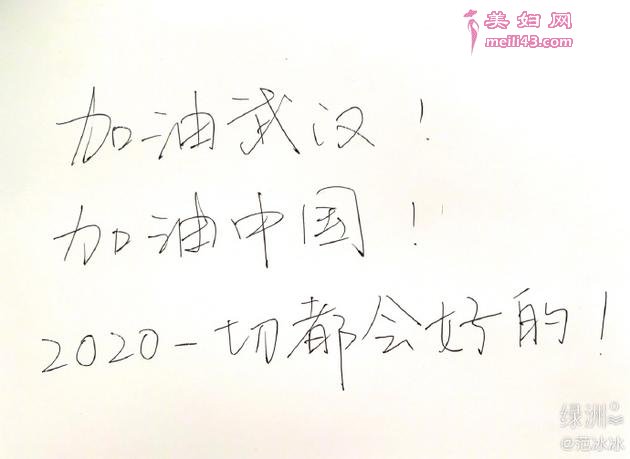 美妇网
meili43.com
加油武汉！
加油中国！
2020一切都会好的！
绿洲
@范冰冰